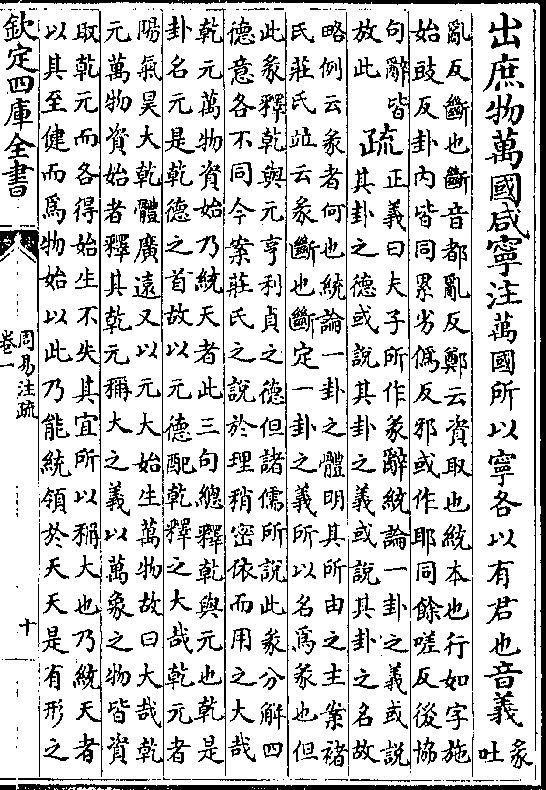 出庶物萬國咸寧注萬國所以寧各以有君也音義彖吐
亂反斷也斷音都亂反鄭云資取也統本也行如字施
始豉反卦內皆同累劣僞反邪或作耶同餘嗟反後協
句辭皆
放此
疏正義曰夫子所作彖辭統論一卦之義或說
其卦之德或說其卦之義或說其卦之名故
略例云彖者何也統論一卦之體明其所由之主案褚
氏莊氏竝云彖斷也斷定一卦之義所以名爲彖也但
此彖釋乾與元亨利貞之德但諸儒所說此彖分解四
德意各不同今案莊氏之說於理稍密依而用之大哉
乾元萬物資始乃統天者此三句總釋乾與元也乾是
卦名元是乾德之首故以元德配乾釋之大哉乾元者
陽氣昊大乾體廣遠又以元大始生萬物故曰大哉乾
元萬物資始者釋其乾元稱大之義以萬象之物皆資
取乾元而各得始生不失其宜所以稱大也乃統天者
以其至健而爲物始以此乃能統領於天天是有形之
欽定四庫全書
周易注疏
卷一
十